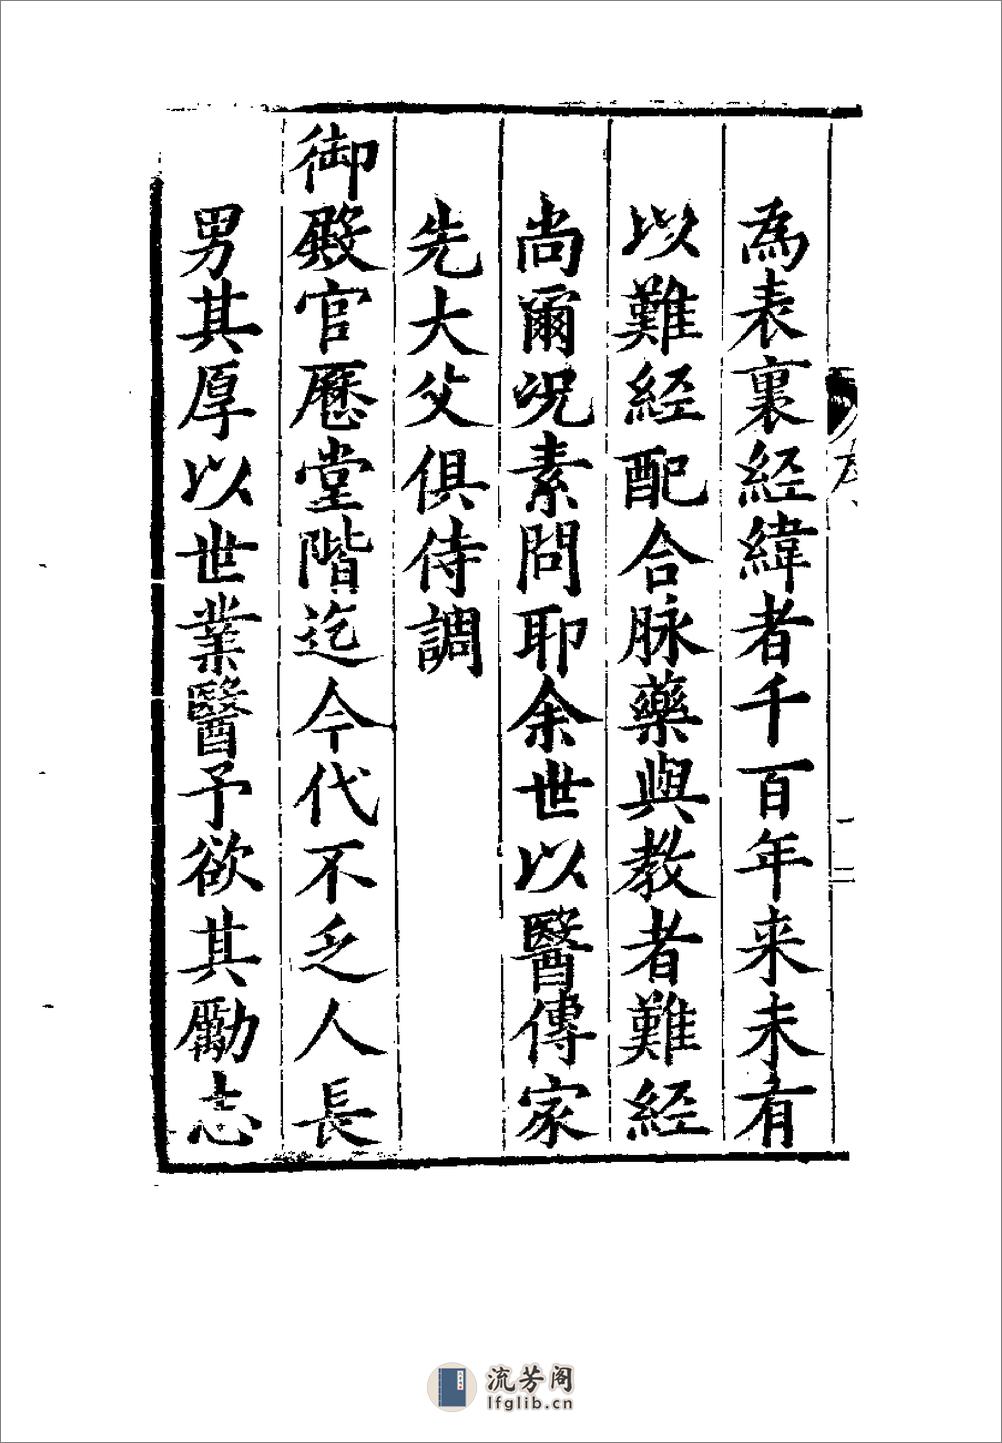 為表裏經緯者千百年来未有
以難經配合脉藥與教者難經
尚爾况素問耶余世以醫傳家
先大父俱侍調
御殿官歷堂階迄今代不乏人長
男其厚以世業醫予欲其勵志
序
二
流芳阁
lfglib.cn